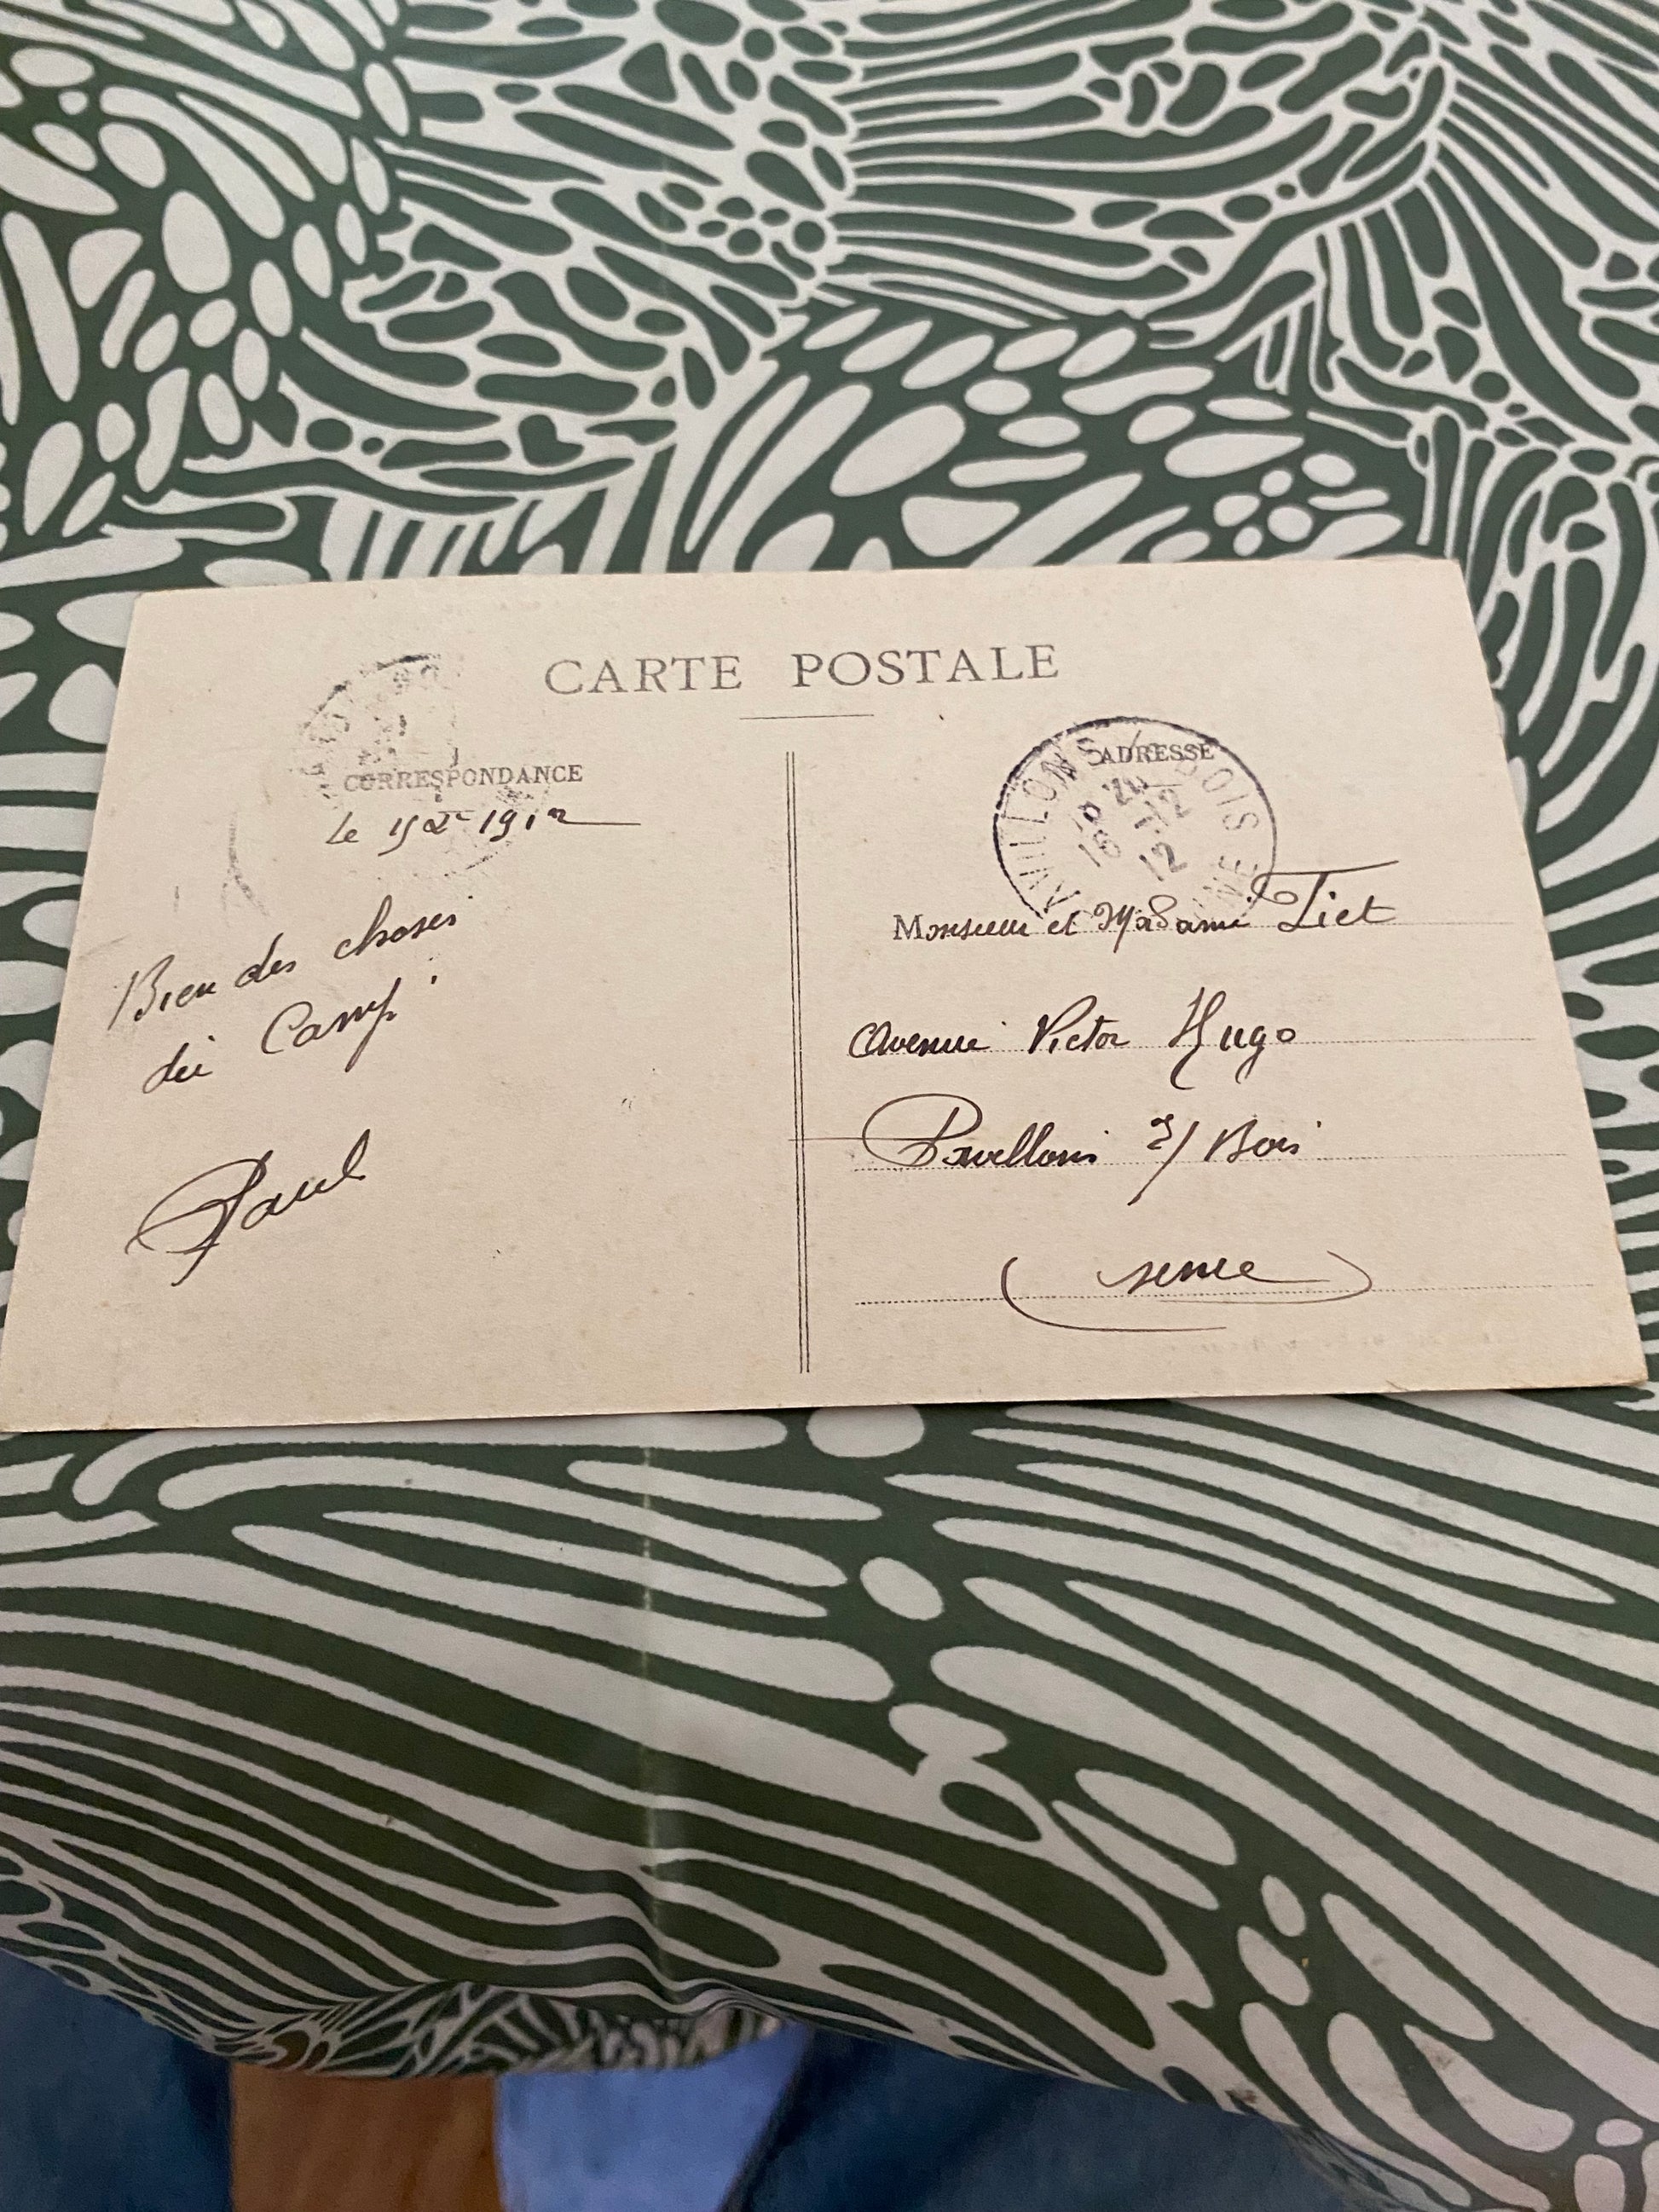 CARTE POSTALE
CORRESPONDANCE
Le 15 Xbre 1912
Bien des choses
du Camp
Paul
ADRESSE
PAVILLONS S BOIS
SEINE
18 20
15 12
12
Monsieur et Madame Liet
Avenue Victor Hugo
Pavillons s/ Bois
(Seine)